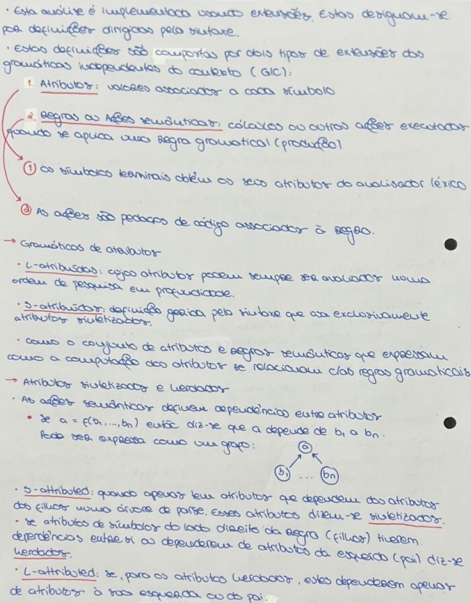 • Esta análise é implementada usando extensões. Estas designam-se
por definições dirigidas pela sintaxe.
• Estas definições são compostas por dois tipos de extensões das
gramáticas independentes do contexto (GIC):
1. Atributos: valores associados a cada símbolo
2. Regras ou Ações semânticas: cálculos ou outras ações executadas
quando se aplica uma regra gramatical (produção)
① Os símbolos terminais obtêm os seus atributos do analisador léxico
② As ações são pedaços de código associados à regra.
→ Gramáticas de atributos
• L-atribuídas: cujos atributos podem sempre ser avaliados numa
ordem de pesquisa em profundidade.
• S-atribuídas: definição gerida pela sintaxe que usa exclusivamente
atributos sintetizados.
• como o conjunto de atributos e regras semânticas que expressam
como a computação dos atributos se relacionam c/as regras gramaticais
→ Atributos sintetizados e herdados
• As ações semânticas definem dependências entre atributos
• Se a = f(b1, ..., bn) então diz-se que a depende de b1 a bn.
Pode ser expressa como um grafo:
a
b1 ... bn
• S-attributed: quando apenas tem atributos que dependem dos atributos
dos filhos numa árvore de parse. Esses atributos dizem-se sintetizados.
• Se atributos de símbolos do lado direito da regra (filhos) tiverem
dependências entre si ou dependerem de atributos da esquerda (pai) diz-se
herdados.
• L-attributed: se, para os atributos herdados, estes dependerem apenas
de atributos à sua esquerda ou do pai.